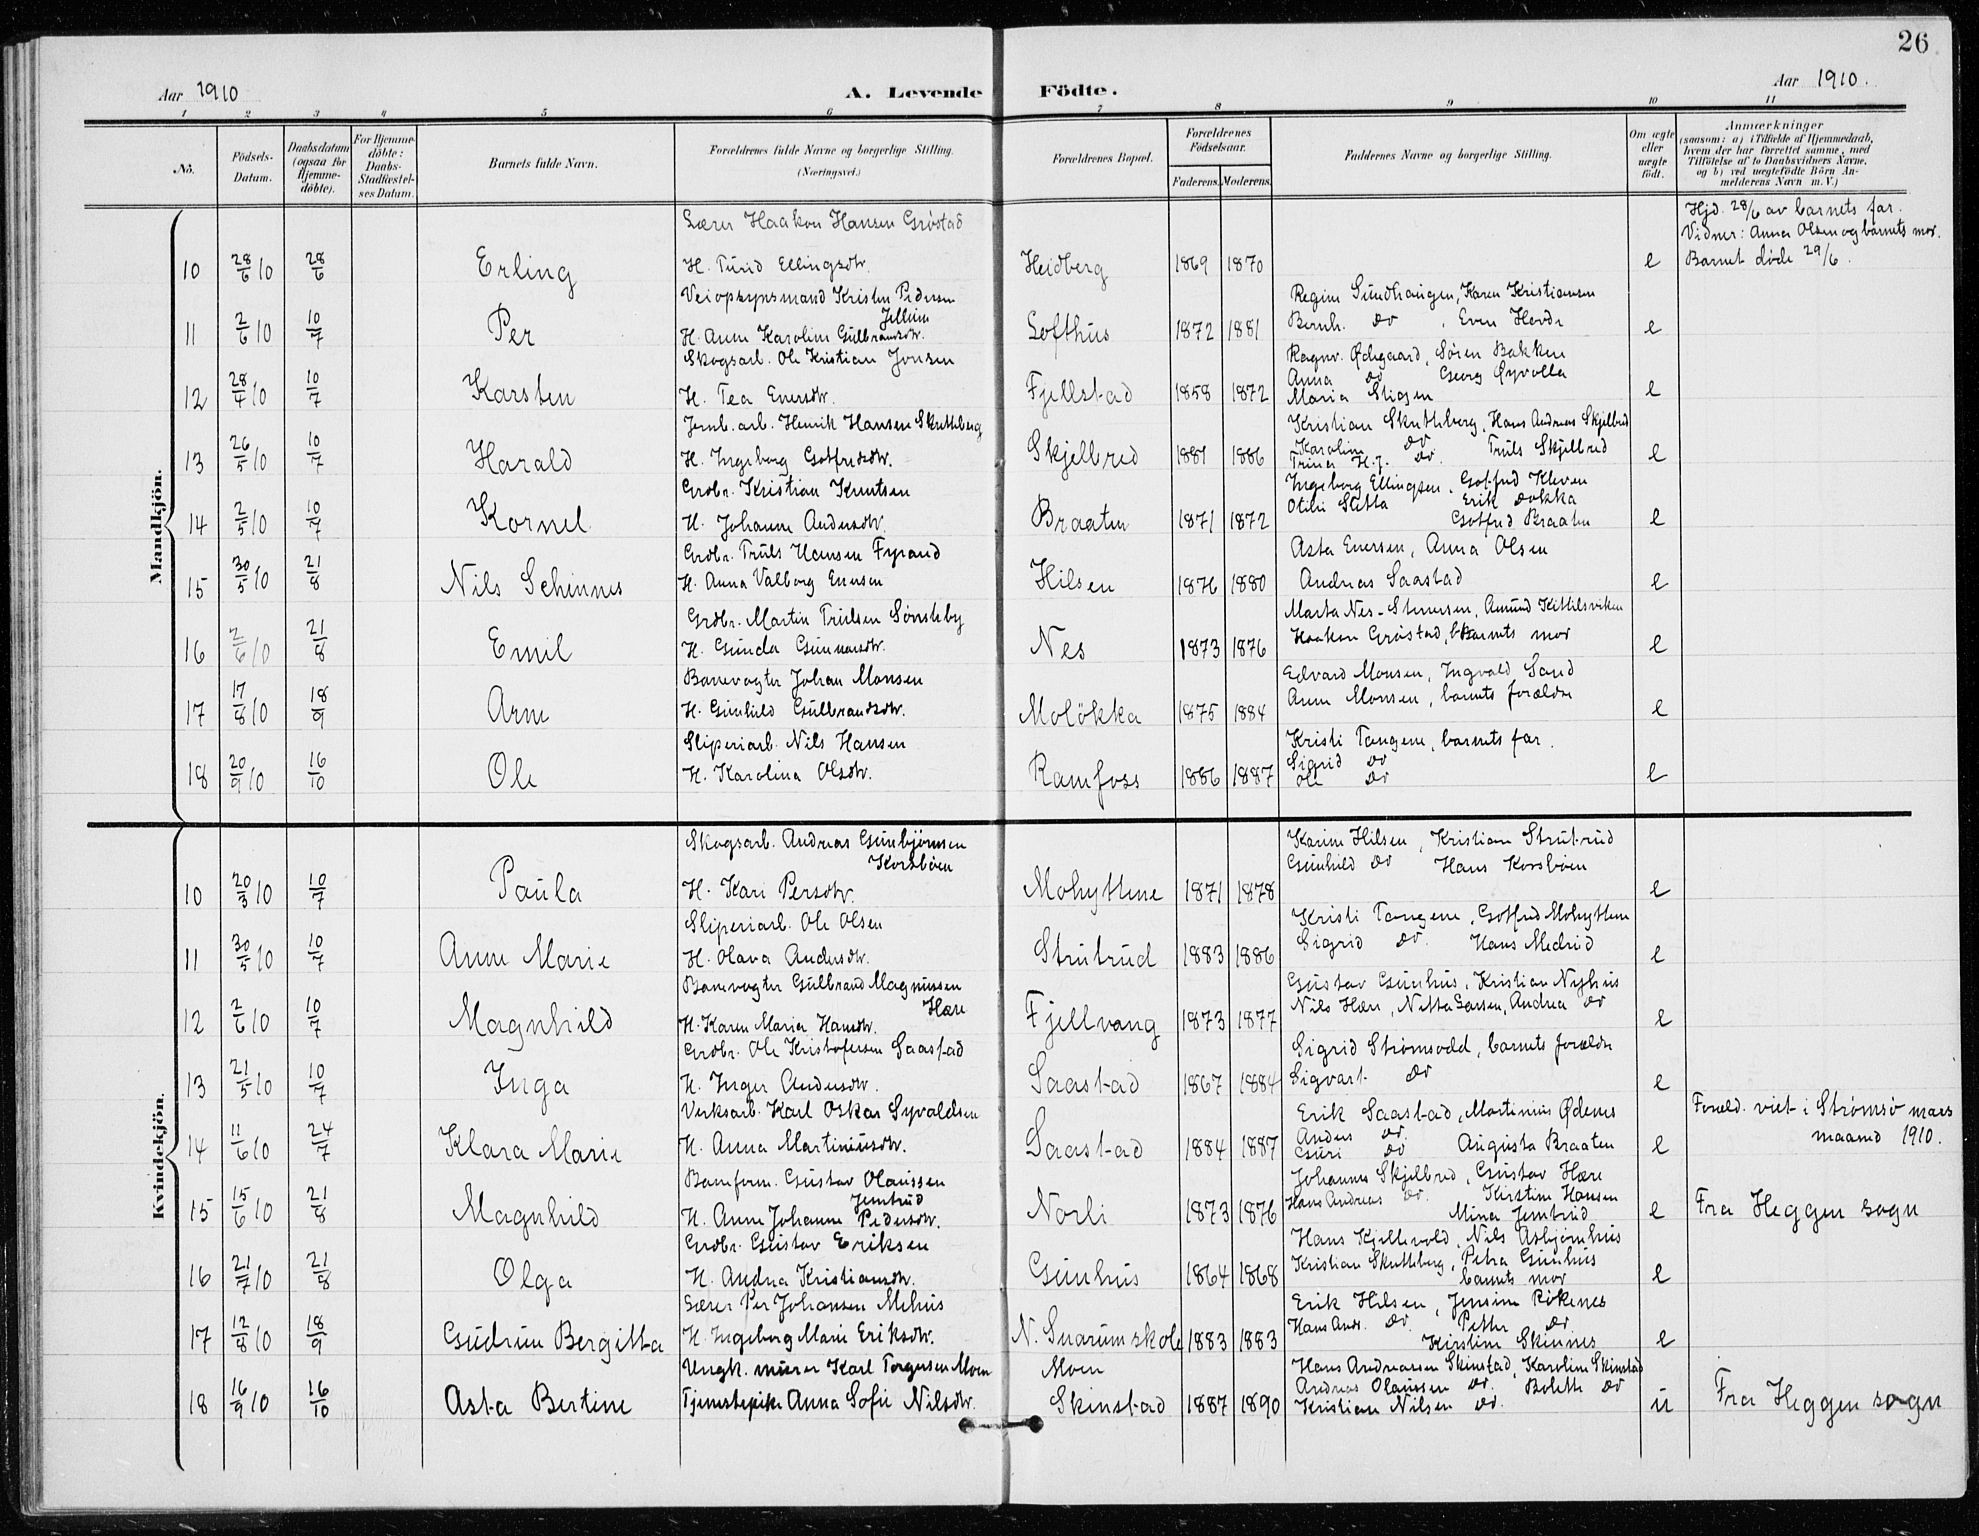 26
Aar 1910
A. Levende Födte.
Aar 1910.
1 2 3 4 5 6 7 8 9 10 11
No.
Födsels-Datum.
Daabsdatum (ogsaa for Hjemme-döbte).
For Hjemme-döbte: Daabs-Stadfæstel-ses Datum.
Barnets fulde Navn.
Forældrenes fulde Navne og borgerlige Stilling. (Næringsvei.)
Forældrenes Bopæl.
Forældrenes Födselsaar.
Faderens. Moderens.
Faddernes Navne og borgerlige Stilling.
Om ægte eller uægte födt.
Anmærkninger (saasom: a) i Tilfælde af Hjemmedaab, hvem der har forrettet samme, med Tilföielse af to Daabsvidners Navne, og b) ved uægtefödte Börn Anmelderens Navn m. V.)
Mandkjön.
Lærer Haakon Hansen Grøstad
Hjd. 28/6 av barnets far.
Vidner: Anna Olsen og barnets mor.
10 28/6 10 28/6 Erling H. Turid Ellingsdtr. Heidberg 1869 1870 e Barnet døde 29/6.
Veiopsynsmand Kristen Pedersen Jellum Regine Sundhaugen, Karen Kristiansen
11 2/6 10 10/7 Per H. Anne Karoline Gulbrandsdtr. Lofthus 1872 1881 Bernh. do, Even Hovde e
Skogsarb. Ole Kristian Jonsen Ragnv. Ødegaard, Søren Bakken
Anna do Georg Øyvolla
12 28/4 10 10/7 Karsten H. Tea Enersdtr. Fjellstad 1858 1872 Maria Stigen e
Jernb. arb. Henrik Hansen Skutteberg Kristian Skutteberg, Hans Andreas Skjelbred
Karoline do Truls Skjelbred
13 26/5 10 10/7 Harald H. Ingeborg Gotfredsdtr. Skjelbred 1881 1886 Trina H.j. do. e
Grdbr. Kristian Knutsen Ingeborg Ellingsen, Gotfred Kleven
Otilie Sletta Erik Dokka
14 2/5 10 10/7 Kornel H. Johanne Andersdtr. Braaten 1871 1872 Gotfred Braaten e
Grdbr. Truls Hansen Fyrand Asta Enersen, Anna Olsen
15 30/5 10 21/8 Nils Schinnes H. Anna Valborg Enersen Hilsen 1876 1880 Andreas Saastad e
Grdbr. Martin Trulsen Sønsteby Marta Nes-Stenersen, Amund Kittilsviken
16 2/6 10 21/8 Emil H. Gunda Gunnarsdtr. Nes 1873 1876 Haakon Grøstad, barnets mor e
Banevogter Johan Monsen Edvard Monsen, Ingvald Sand
17 17/8 10 18/9 Arne H. Gunhild Gulbrandsdtr. Molökka 1875 1884 Anne Monsen, barnets forældre e
Sliperiarb. Nils Hansen Kristi Tangene, barnets far.
Sigrid do
18 20/9 10 16/10 Ole H. Karolina Olsdtr. Ramfoss 1886 1887 Ole do e
Kvindekjön.
Skogsarb. Andreas Gunbjörnsen Korsböen Karine Hilsen, Kristian Strutrud
Gunhild do Hans Korsböen
10 20/3 10 10/7 Paula H. Kari Persdtr. Mohyttene 1871 1878 e
Sliperiarb. Ole Olsen Kristi Tangene, Gotfred Mohyttene
11 30/5 10 10/7 Anne Marie H. Olava Andersdtr. Strutrud 1883 1886 Sigrid do. Hans Medrud e
Banevogter Gulbrand Magnussen Hære Gustav Gunhus, Kristian Nyhus
Nils Hære, Netta Larsen, Andrea do
12 2/6 10 10/7 Magnhild H. Karen Maria Hansdtr. Fjellvang 1873 1877 e
Grdbr. Ole Kristofersen Saastad Sigrid Strømsodd, barnets forældre
13 21/5 10 10/7 Inga H. Inger Andersdtr. Saastad 1867 1884 Sigvart do e
Verksarb. Karl Oskar Syvaldsen Erik Saastad, Martinius Ødenes Foræld. viet i Strømsø mars
Anders do maaned 1910.
14 11/6 10 24/7 Klara Marie H. Anna Martiniusdtr. Saastad 1884 1887 Guri do Augusta Braaten e
Baneform. Gustav Olaussen Jemtrud Johannes Skjelbred, Gustav Hære
Hans Andreas do. Kirstine Hansen
15 15/6 10 21/8 Magnhild H. Anne Johanne Pedersdtr. Norli 1873 1876 Mina Jemtrud e Fra Heggen sogn
Grdbr. Gustav Eriksen Hans Kjillevold, Nils Asbjørnhus
Kristian Skutteberg, Petra Gunhus
16 21/7 10 21/8 Olga H. Andrea Kristiansdtr. Gunhus 1864 1868 barnets mor e
Lærer Per Johansen Mehus Erik Hilsen, Jensine Rökenes
Hans Andr. do. Petter do.
17 12/8 10 18/9 Gudrun Bergitta H. Ingeborg Marie Eriksdtr. N. Snarum skole 1883 1883 Kirstine Skinnes e
Ungk. murer Karl Torgersen Moen Moen Hans Andreasen Skinstad, Karoline Skinstad
Andreas Olaussen do. Bolette do
18 16/9 10 16/10 Asta Bertine Tjenestepike Anna Sofie Nilsdtr. Skinstad 1887 1890 Kristian Nilsen do. u Fra Heggen sogn